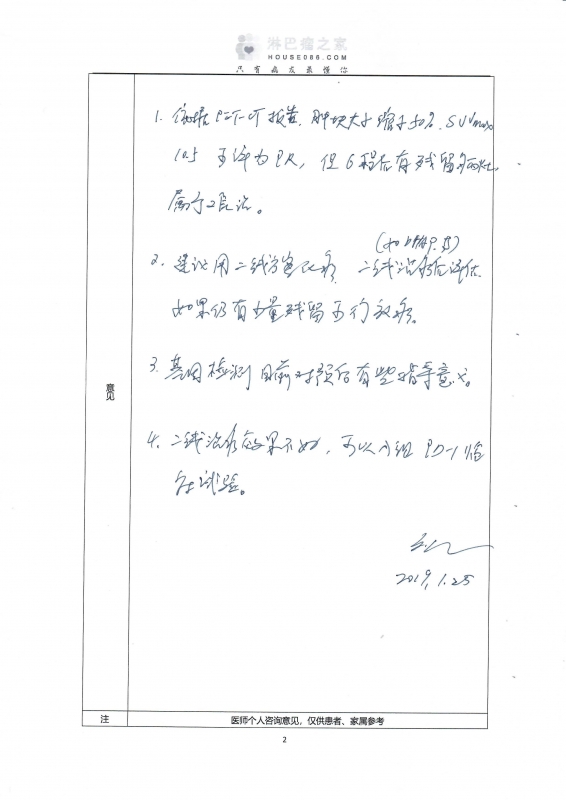 淋巴瘤之家
HOUSE086.COM
只有病友最懂你
意见
1. 依据PET-CT报告, 肿块大于缩小50%. SUVmax
10.5 可评为PR, 但6程后有残留
属于
2. 建议用二线方案化疗 二线治疗后评估
如果仍有少量残留可行放疗.
3. 基因检测目前对预后有些指导意义.
4. 二线治疗效果不好, 可以入组PD-1临
床试验。
2019, 1.25
注
医师个人咨询意见，仅供患者、家属参考
2